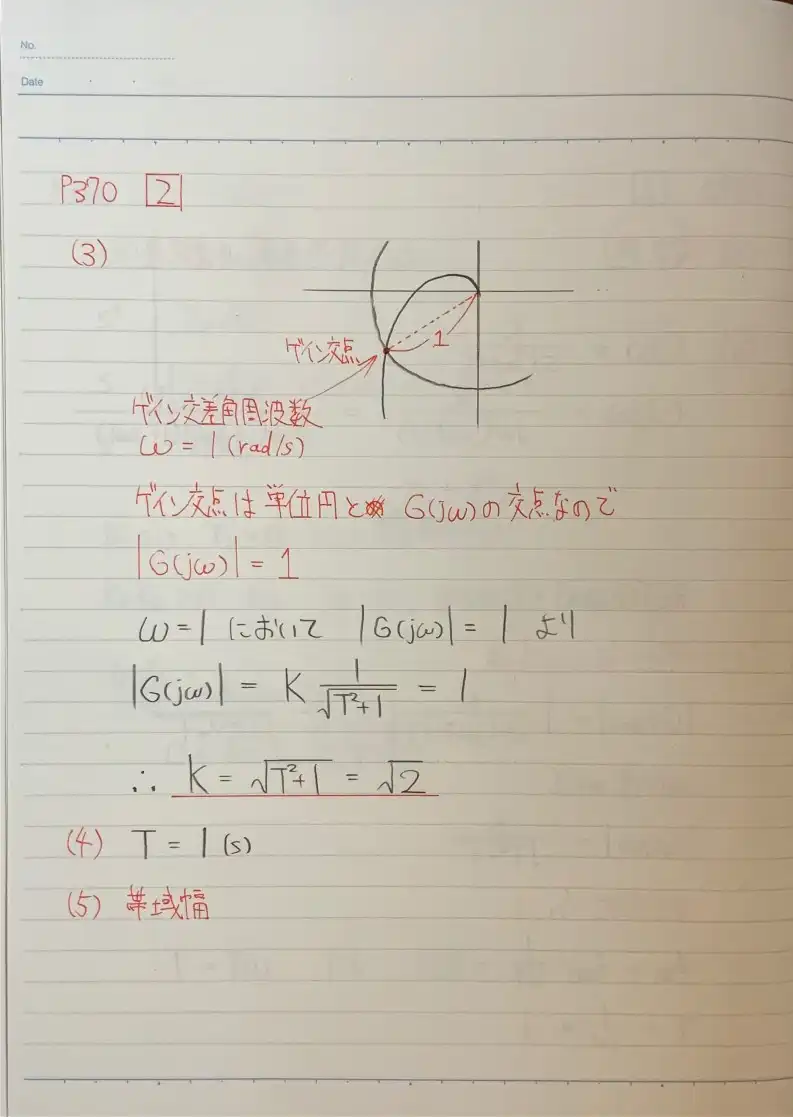 No.
Date
P370 2
(3)
1
ゲイン交点
ゲイン交差角周波数
ω = 1 (rad/s)
ゲイン交点は単位円と G(jω)の交点なので
|G(jω)| = 1
ω = 1 において |G(jω)| = 1 より
|G(jω)| = K 1/√(T²+1) = 1
∴ K = √(T²+1) = √2
(4) T = 1 (s)
(5) 帯域幅